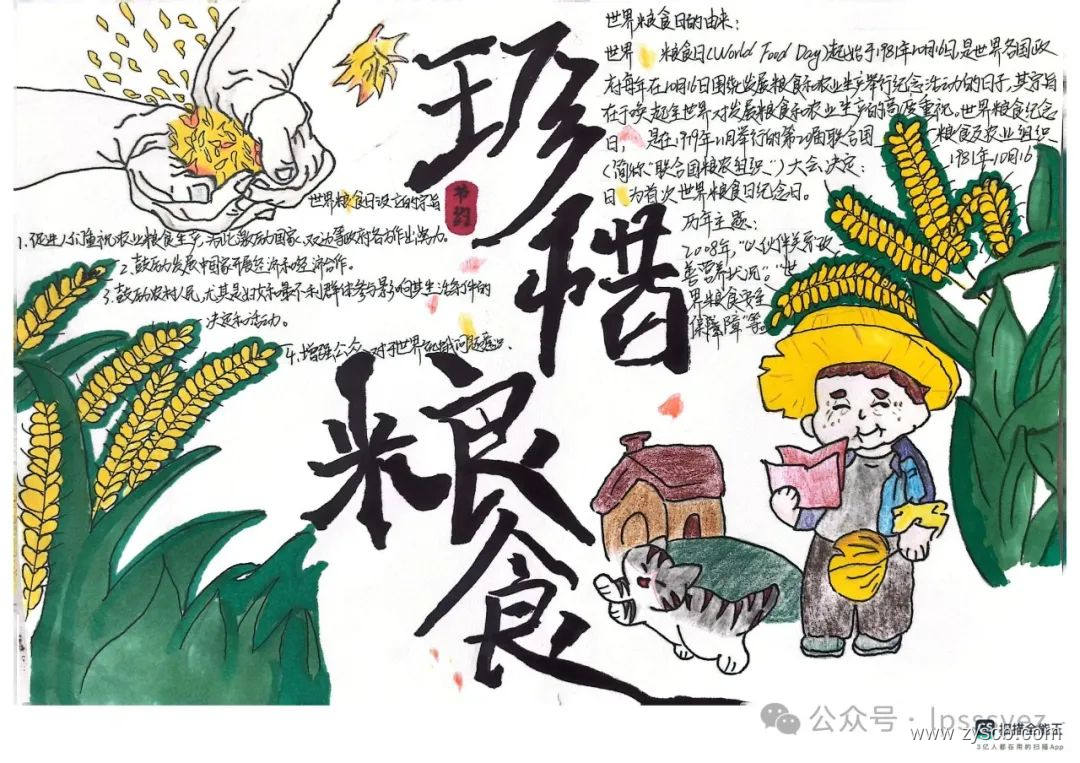 珍惜
粮食
节约
世界粮食日的由来:
世界 粮食日(World Food Day)起始于1981年10月16日,是世界各国政
府每年在10月16日围绕发展粮食和农业生产举行纪念活动的日子,其宗旨
在于唤起全世界对发展粮食和农业生产的高度重视。世界粮食纪念
日, 是在1979年11月举行的第20届联合国 粮食及农业组织
(简称“联合国粮农组织”)大会决定: 1981年10月16
日 为首次世界粮食日纪念日。
历年主题:
2008年,“以伙伴关系改
善营养状况”。“世
界粮食安全
保障障”等。
世界粮食日设立的宗旨
1、促进人们重视农业粮食生产,为此激励国家、双边等政府各方作出努力。
2、鼓励发展中国家开展经济和经济合作。
3、鼓励农村人民,尤其是妇女和最不利群体参与影响其生活条件的
决定和活动。
4、增强公众 对于世界饥饿问题意识、
公众号·lpsssyez
www.zyscb.com
扫描全能王
3亿人都在用的扫描App